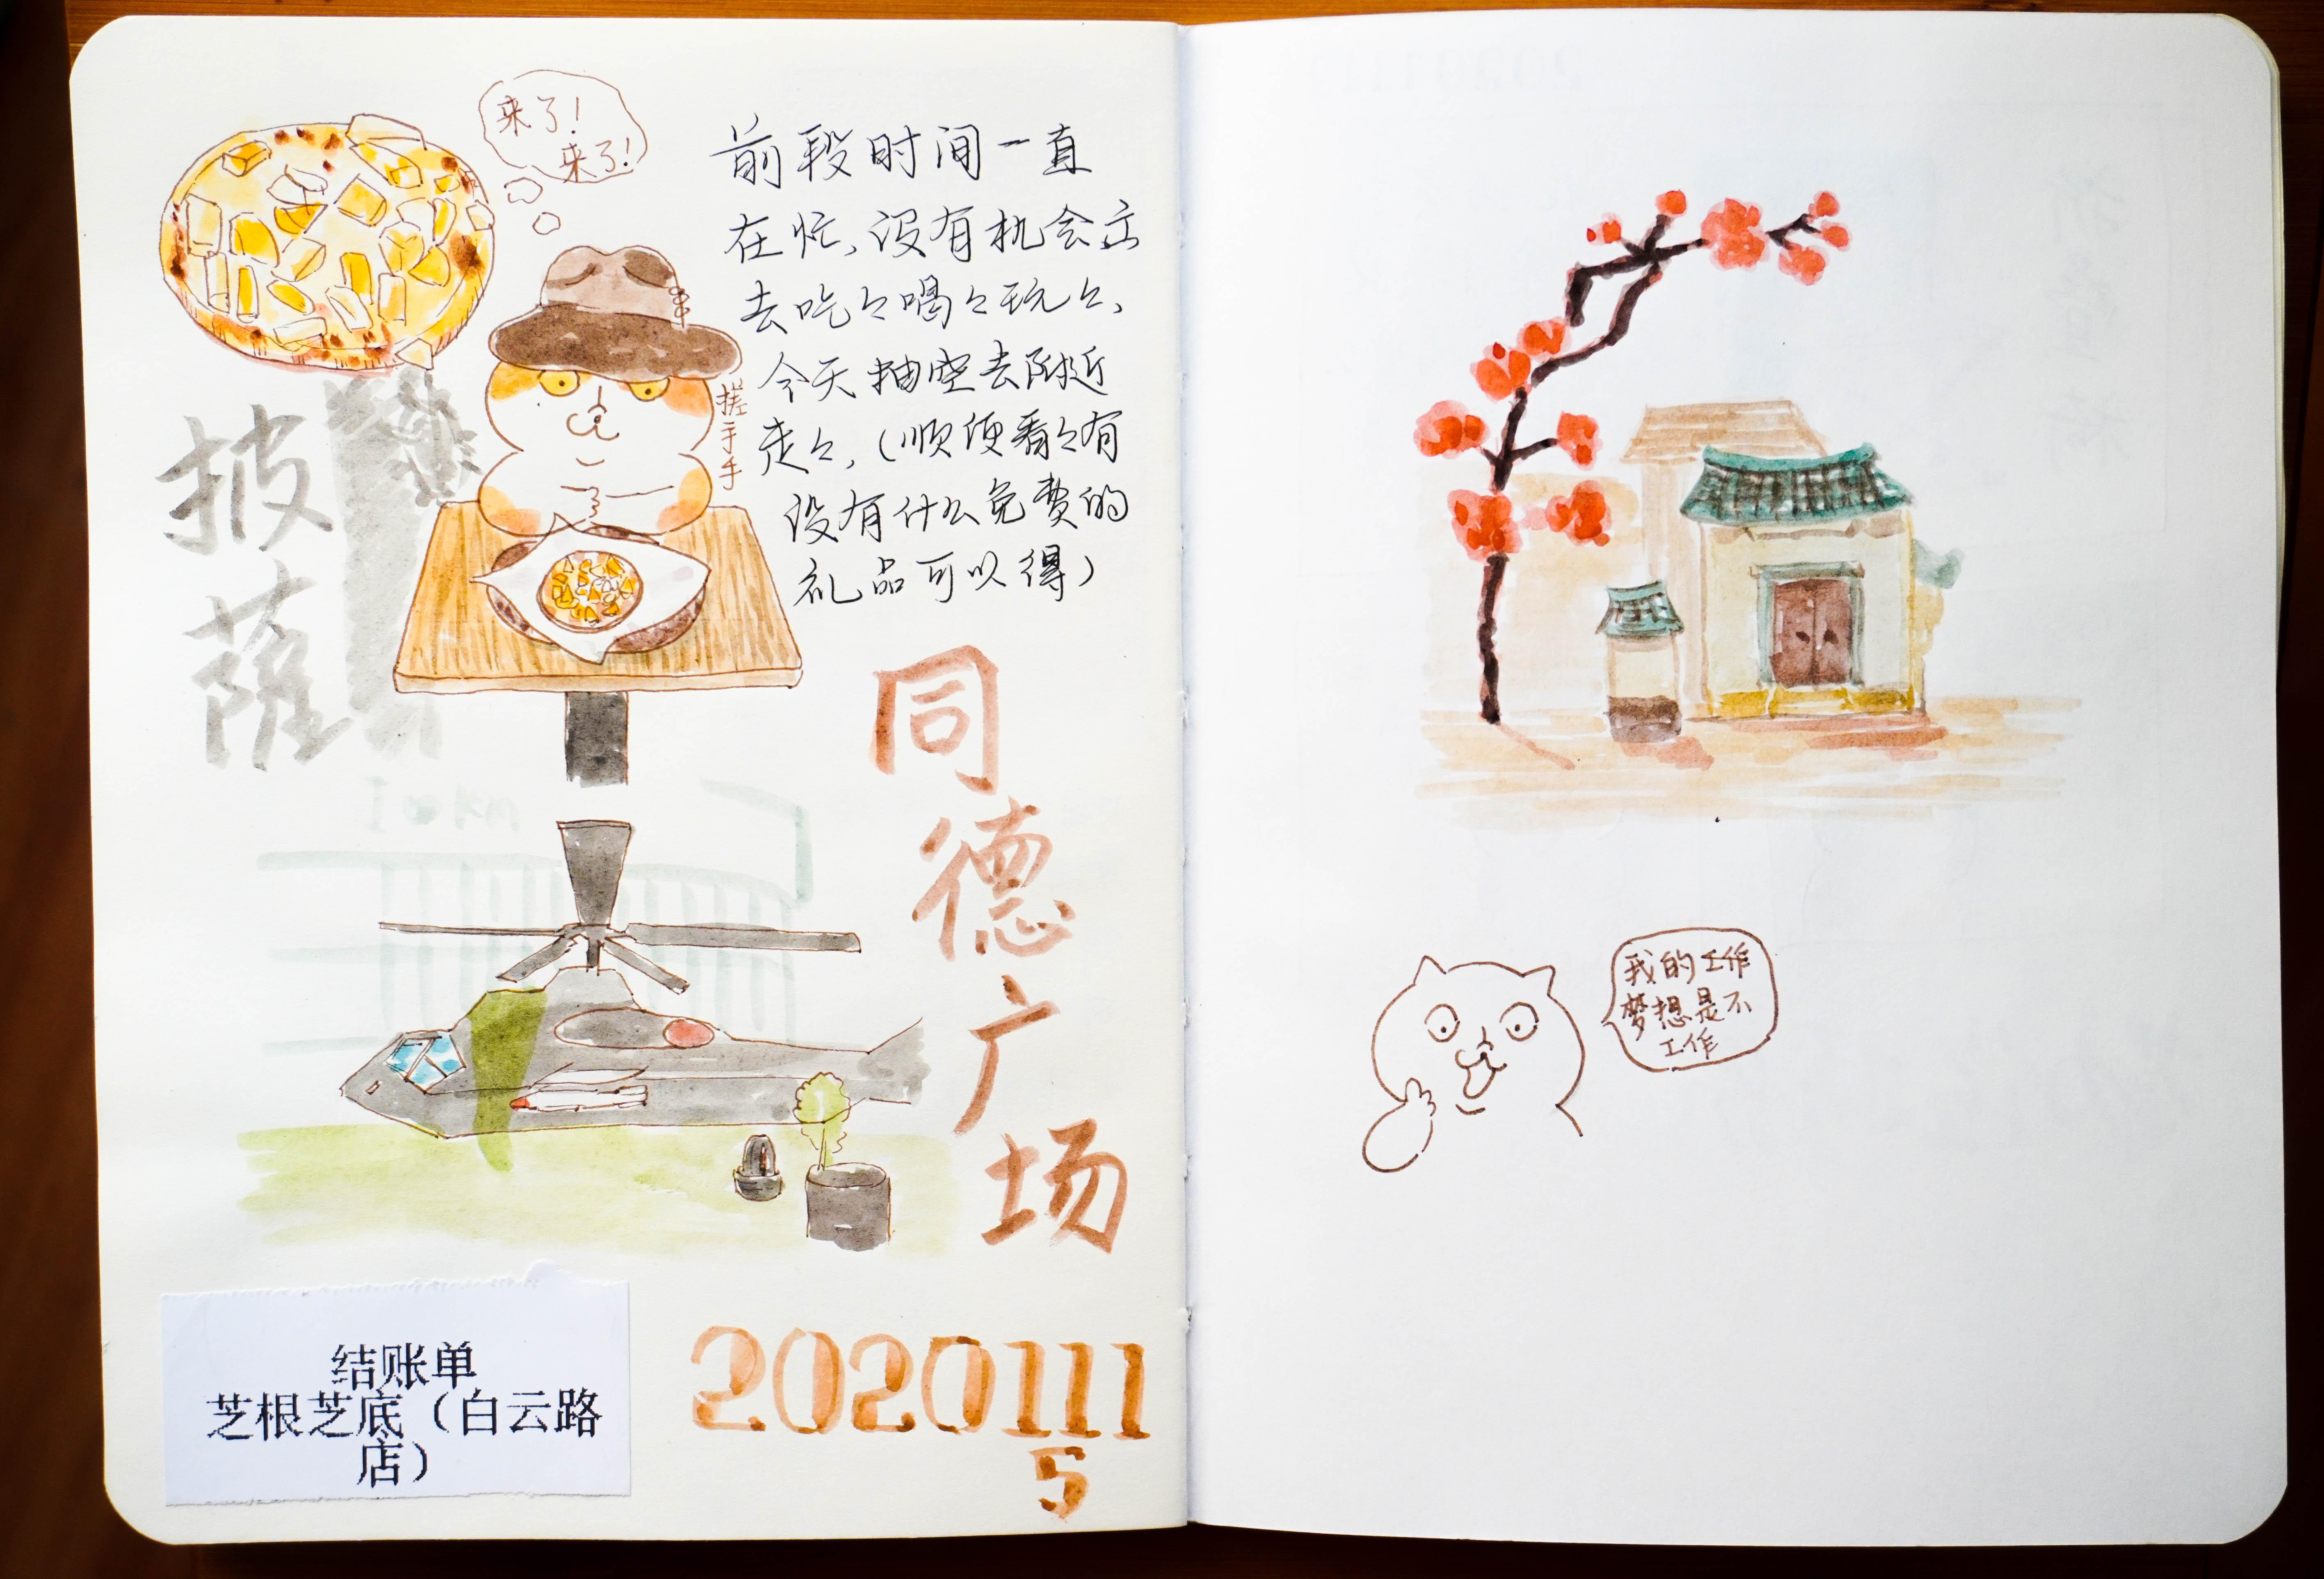 来了!
来了!
前段时间一直
在忙、没有机会出
去吃々喝々玩々、
今天抽空去附近
走々,(顺便看々有
没有什么免费的
礼品可以得)
搓手手
披萨
同德广场
结账单
芝根芝底(白云路
店)
2020111
5
我的工作
梦想是不
工作